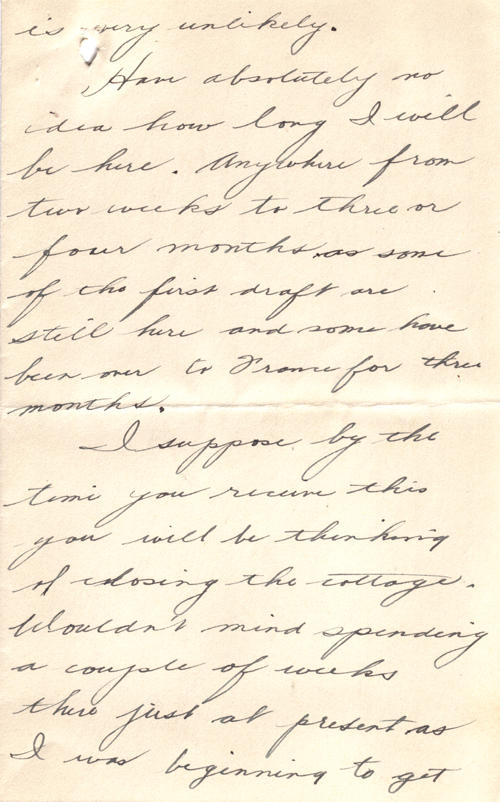 is very unlikely.
Have absolutely no
idea how long I will
be here. Anywhere from
two weeks to three or
four months as some
of the first draft are
still here and some have
been over to France for three
months.
I suppose by the
time you receive this
you will be thinking
of closing the cottage.
Wouldn't mind spending
a couple of weeks
there just at present as
I was beginning to get